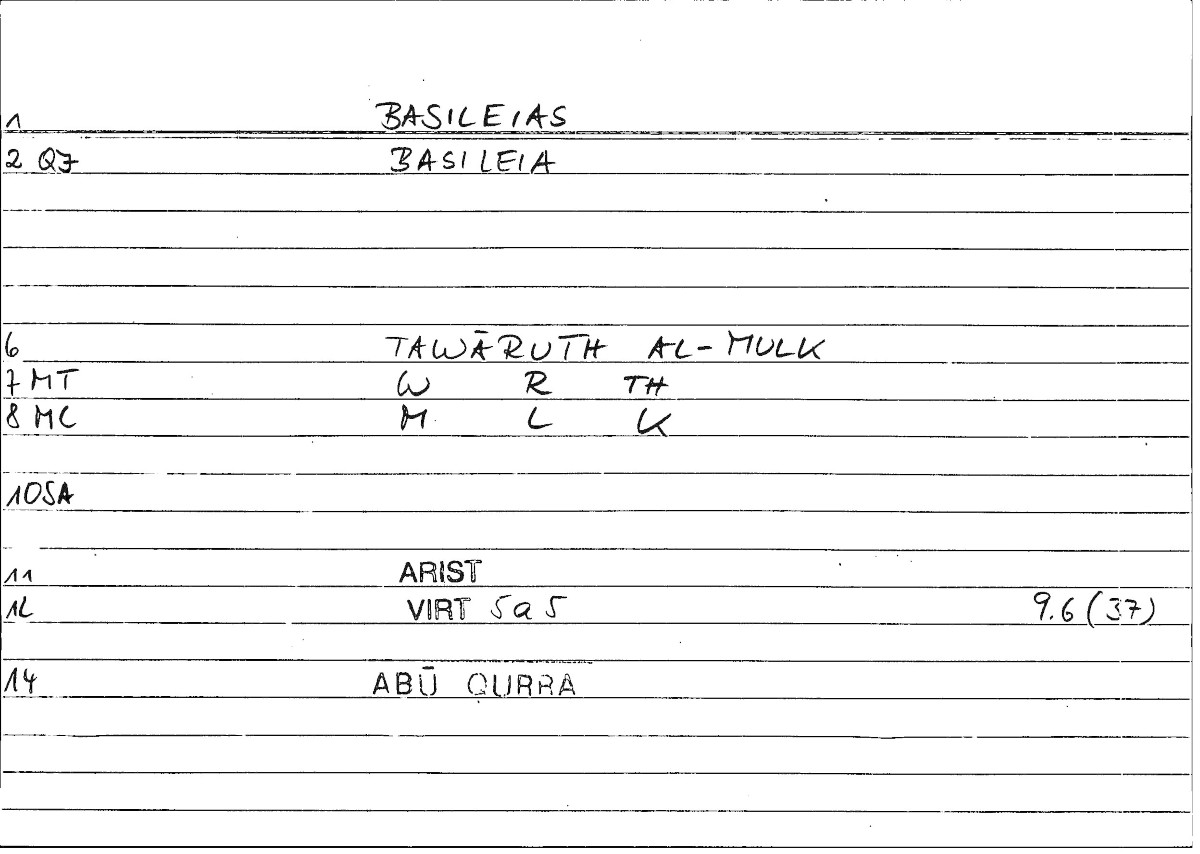 1 BASILEIAS
2 QJ BASILEIA
6 TAWĀRUTH AL-MULK
7 MT W R TH
8 MC M L K
10 SA
11 ARIST
12 VIRT 5a5 9.6 (37)
14 ABŪ QURRA